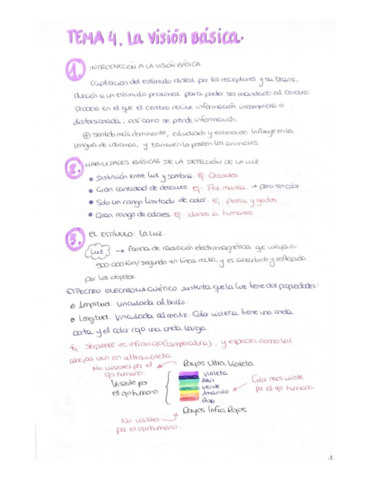 TEMA 4. La visión Básica.
1. INTRODUCCIÓN A LA VISIÓN BÁSICA
Captación del estímulo distal por los receptores y su trans-
ducción a un estímulo proximal para poder ser mandado al cerebro.
Proceso en el que el cerebro recibe información incompleta o
distorsionada, así como se pierde información.
sentido más dominante, estudiado y entendido. Influye en la
lengua de idiomas, y también lo poseen los animales.
2. HABILIDADES BÁSICAS DE LA DETECCIÓN DE LA LUZ.
Distinción entre luz y sombra. Ej:
Gran cantidad de detalles. Ej: → pero sin color
Solo un rango limitado de color. Ej: perros y gatos
Gran rango de colores. Ej: humanos
3. EL ESTÍMULO: La luz.
Luz → Forma de radiación electromagnética que viaja a
300 000 km/segundo en línea recta, y es absorbida y reflejada
por los objetos.
ESPECTRO ELECTROMAGNÉTICO sustenta que la luz tiene dos propiedades:
Amplitud. Vinculada al brillo.
Longitud. Vinculada al matiz. Color violeta tiene una onda
corta y el color rojo una onda larga.
Ej: Serpiente ve infrarrojo (temperatura), y especies como las
abejas ven en ultravioleta.
No visibles por el
ojo humano
Rayos Ultra Violeta
Visible por
el ojo humano
Violeta
Azul
Verde
Amarillo
Rojo
Color más visible
por el ojo humano.
Rayos Infra Rojos
No visibles
por el ojo humano.